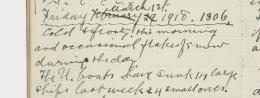 March 1st.
Friday February 22 1918. 1306.
Cold & frosty this morning
and occasional flakes of snow
during the day.
The U. boats have sunk 14 large
ships last week & 4 small ones.